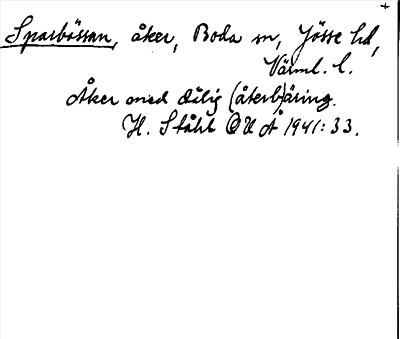 +
Sparbössan, åker, Boda sn, Jösse hd,
Värml. l.
Åker med dålig (åter)bäring.
H. Ståhl OUÅ 1941:33.